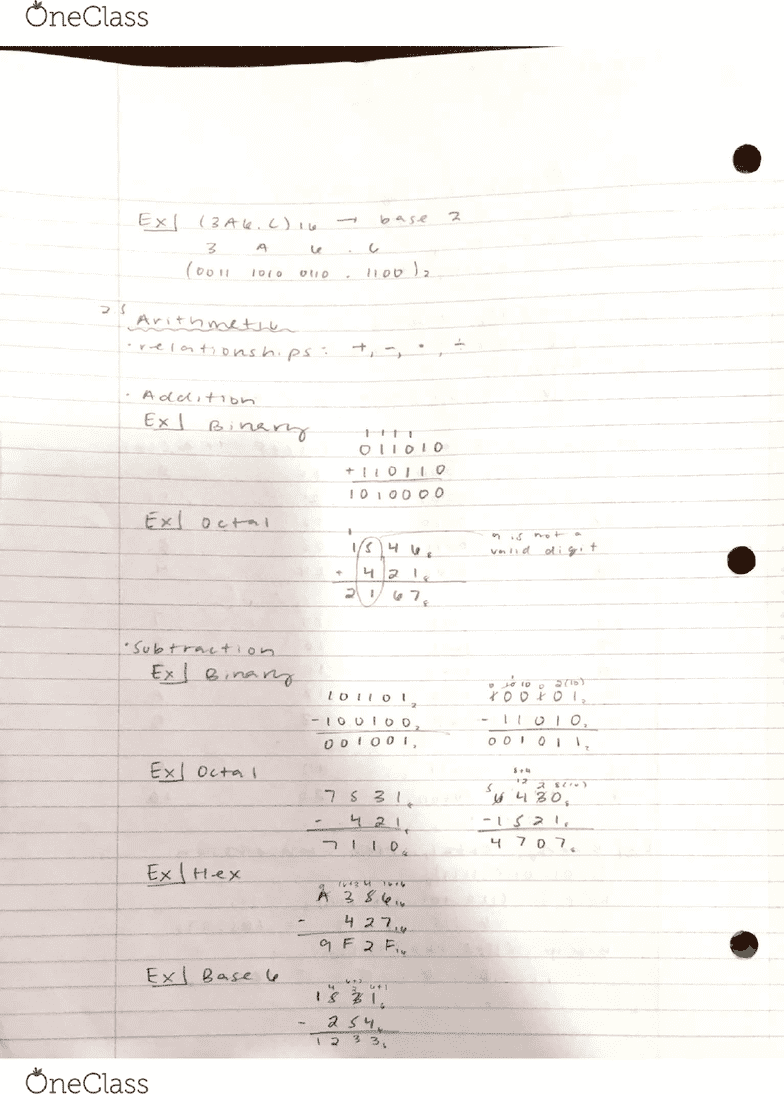 OneClass
Ex| (3A6.C)16 → base 2
3 A 6 . C
(0011 1010 0110 . 1100)2
Arithmetic
· relationships: +, -, ·, ÷
· Addition
Ex| Binary
1 1 1 1
0 1 1 0 1 0
+ 1 1 0 1 1 0
1 0 1 0 0 0 0
Ex| Octal
1
1 5 4 6 8
+ 4 2 1 8
2 1 6 7 8
9 is not a
valid digit
· Subtraction
Ex| Binary
1 0 1 1 0 1 2
- 1 0 0 1 0 0 2
0 0 1 0 0 1 2
1 0 0 1 0 1 2
- 1 1 0 1 0 2
0 0 1 0 1 1 2
Ex| Octal
7 5 3 1 8
- 4 2 1 8
7 1 1 0 8
8+4
5 12 2 8(10)
6 4 3 0 8
- 1 5 2 1 8
4 7 0 7 8
Ex| Hex
9 16+3 4 16+6
A 3 5 6 16
- 4 2 7 16
9 F 2 F 16
Ex| Base 6
1 5 3 1 6
- 2 5 4 6
1 2 3 3 6
OneClass